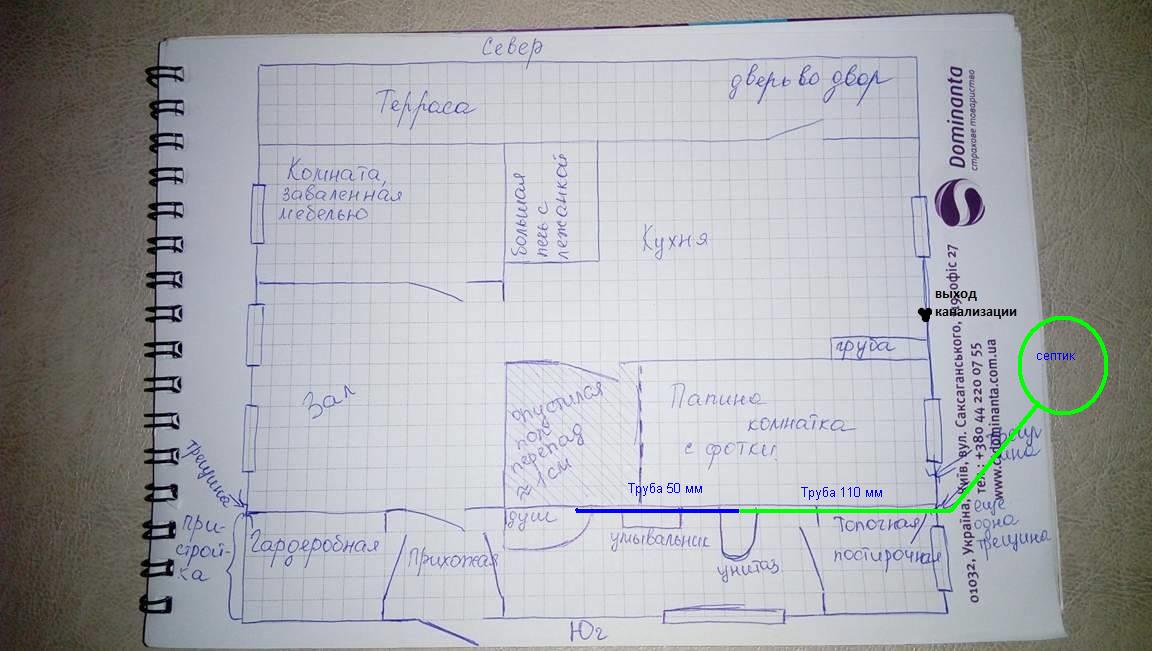 Север
Терраса
дверь во двор
Комната,
заваленная
мебелью
большая
печь с
лежанкой
Кухня
Dominanta
страхове товариство
выход
канализации
груба
септик
Зал
опустился
пол
перепад
≈ 1 см
Папина
комнатка
с фотки
трещина
Труба 50 мм
Труба 110 мм
душ
умывальник
унитаз
Топочная
постирочная
еще
одна
трещина
при-
строй-
ка
Гардеробная
Прихожая
Юг
01032, Україна, Київ, вул. Саксаганського, офіс 27
тел.: +380 44 220 07 55
www.dominanta.com.ua